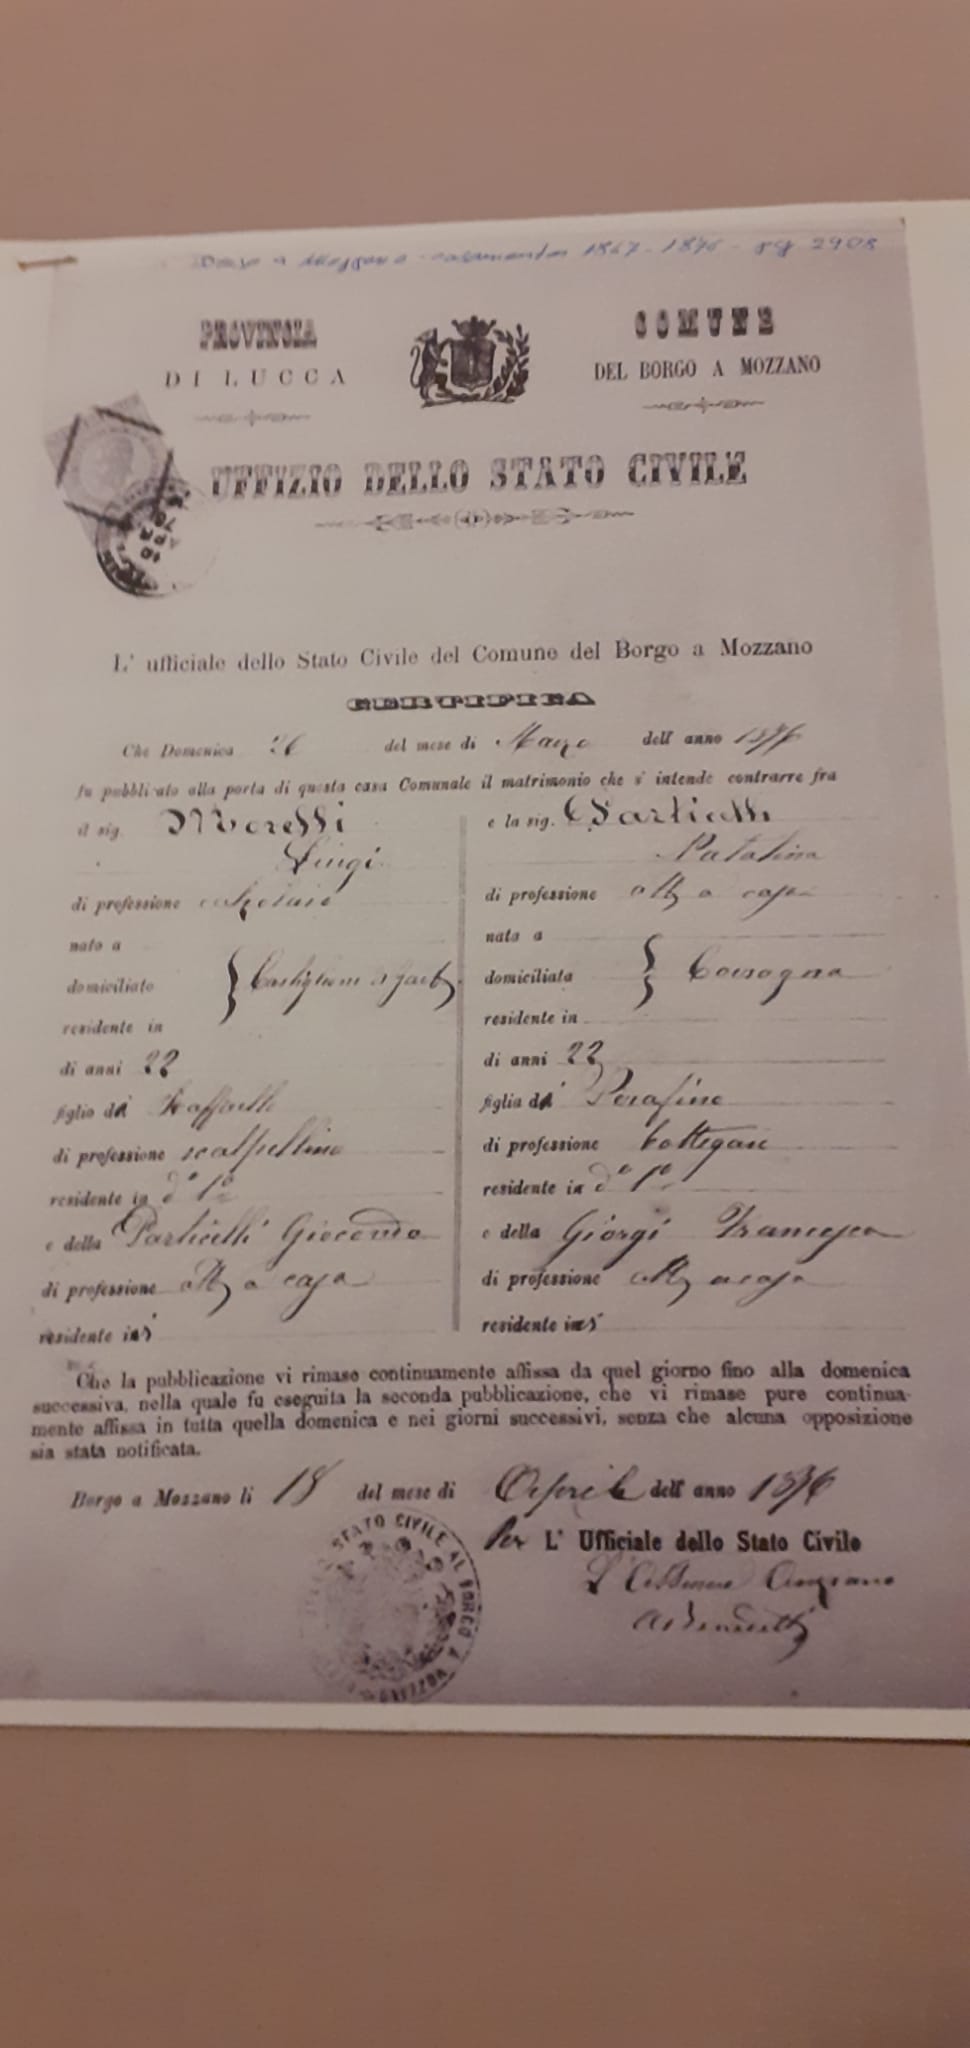 Borgo a Mozzano - casamentos 1867-1876 - pg 2908
PROVINCIA
DI LUCCA
COMUNE
DEL BORGO A MOZZANO
UFFIZIO DELLO STATO CIVILE
10
APR
76
L' ufficiale dello Stato Civile del Comune del Borgo a Mozzano
CERTIFICA
Che Domenica 26 del mese di Marzo dell' anno 1876
fu pubblicato alla porta di questa casa Comunale il matrimonio che s' intende contrarre fra
il sig. Morelli
Luigi
di professione
nato a
domiciliato } Castiglione di Garf
residente in
di anni 22
figlio di Raffaello
di professione scalpellino
residente in d° l°
e della Particelli Gioconda
di professione att a casa
residente in
e la sig. Particelli
Natalina
di professione att a casa
nata a
domiciliata } Corsagna
residente in
di anni 22
figlia di Serafino
di professione bottegaie
residente in d° l°
e della Giorgi Francesca
di professione att a casa
residente in
Che la pubblicazione vi rimase continuamente affissa da quel giorno fino alla domenica
successiva, nella quale fu eseguita la seconda pubblicazione, che vi rimase pure continua-
mente affissa in tutta quella domenica e nei giorni successivi, senza che alcuna opposizione
sia stata notificata.
Borgo a Mozzano li 18 del mese di Aprile dell' anno 1876
Per L' Ufficiale dello Stato Civile
L'Assessore Anziano
STATO CIVILE AL BORGO A MOZZANO